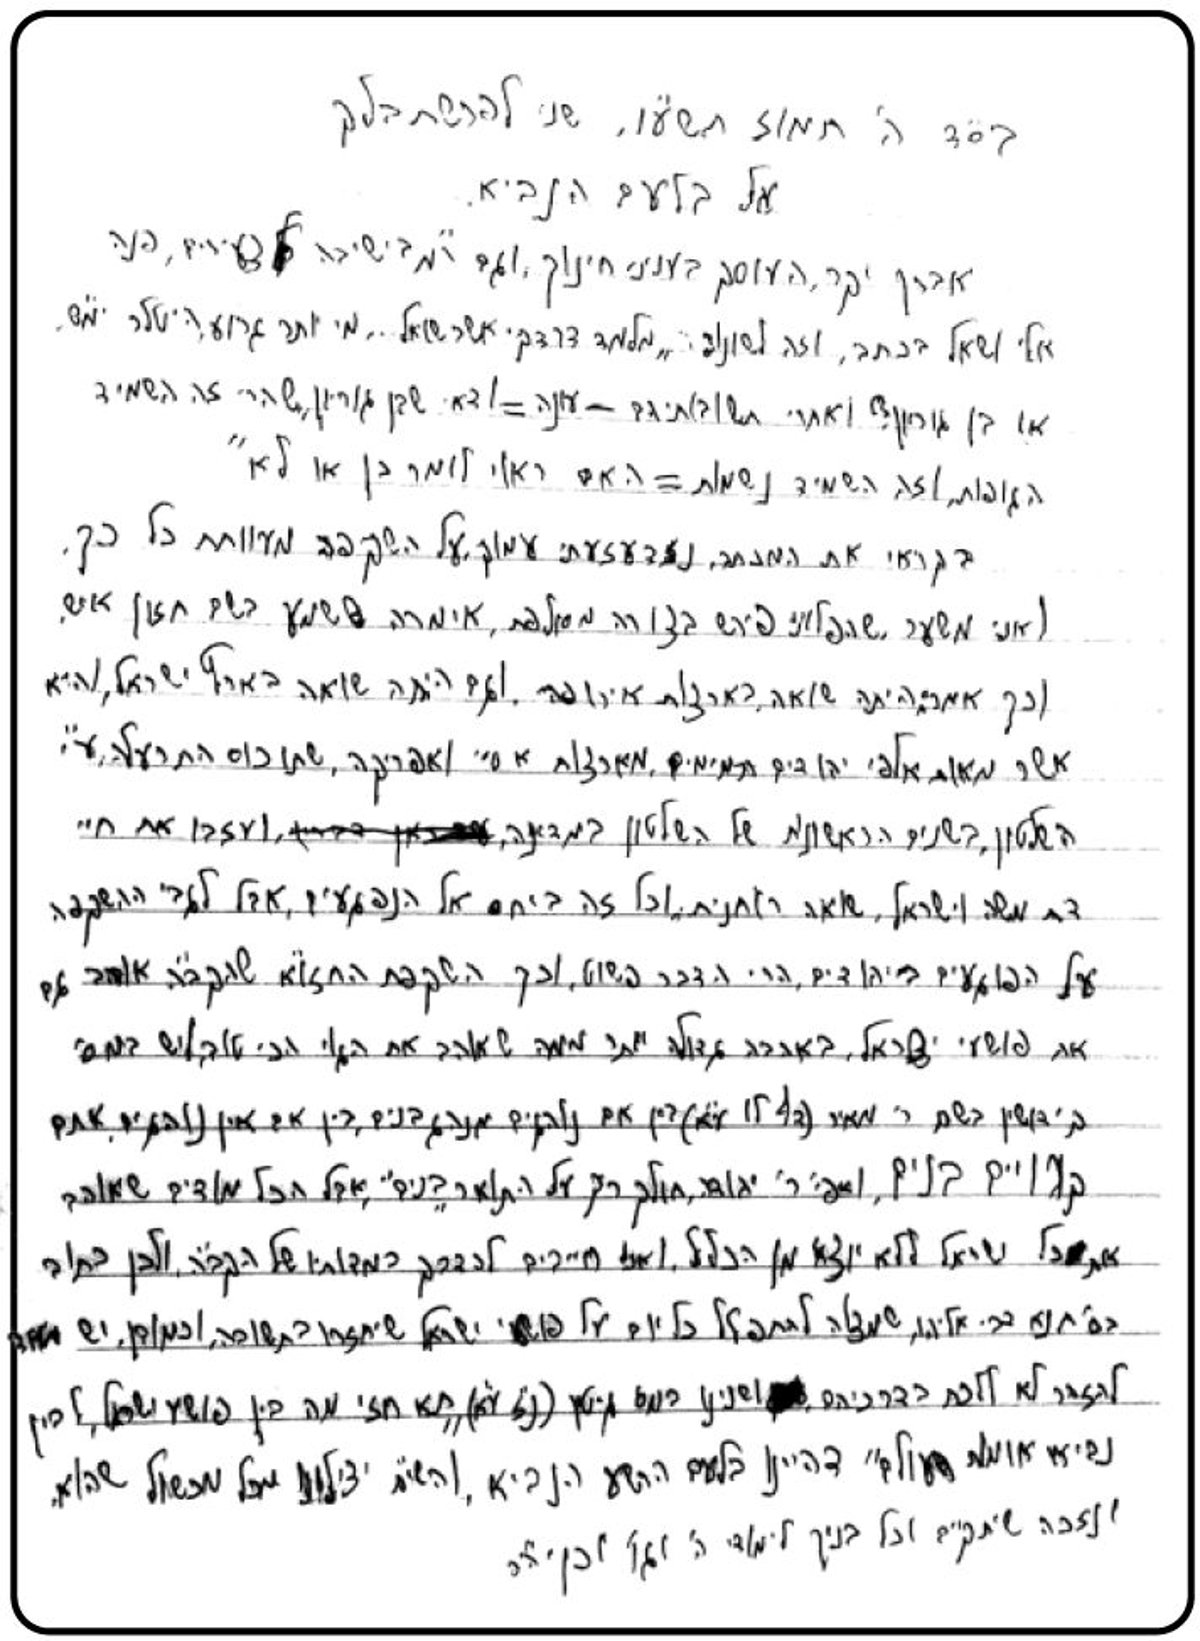 בס"ד ה' תמוז תשע"ו, שני לפרשת בלק
על בלעם הנביא.
אברך יקר, העוסק בעניני חינוך, וגם ר"מ בישיבה לצעירים, פנה
אלי ושאל בכתב, וזה לשונו: "מלמד דרדקי אשר שואל.. מי יותר גרוע, היטלר ימ"ש,
או בן גוריון? ואחרי תשובתיהם – עונה = ודאי שבן גוריון, שהרי זה השמיד
הגופות, וזה השמיד נשמות = האם ראוי לומר כן או לא"
בקראי את המכתב, נזדעזעתי עמוק, על השקפה מעוותת כל כך.
ואני משער, שהפלוני פירש בצורה מסולפת, אימרה ששמע בשם חזון איש,
וכך אמר: היתה שואה, בארצות אירופה. וגם היתה שואה בארץ ישראל, והיא
אשר מאות אלפי יהודים תמימים, מארצות אסיה ואפריקה, שתו כוס התרעלה, ע"י
השלטון, בשנים הראשונות של השלטון במדינה, ועזבו את חיי
דת משה וישראל, שואה רוחנית, וכל זה ביחס אל הנפגעים, אבל לגבי ההשקפה
על הפוגעים ביהודים, הרי הדבר פשוט, וכך השקפת החזו"א שהקב"ה אוהב גם
את פושעי ישראל, באהבה גדולה יותר ממה שאוהב את הגוי הכי טוב, וליש במס'
קידושין בשם ר' מאיר (דף לו ע"א) בין אם נוהגים מנהג בנים, בין אם אין נוהגים, אתם
קרויים בנים, ואפי' ר' יהודה, חולק רק על התואר "בנים", אבל הכל מודים שאוהב
את כל ישראל ללא יוצא מן הכלל, ואנו חייבים להדבק במדותיו של הקב"ה, ולכן כתוב
בס' תנא דבי אליהו, שמצוה להתפלל כל יום על פושעי ישראל שיחזרו בתשובה, וכמובן, יש מאד
להזהר לא ללכת בדרכיהם, ושנינו במס' גיטין (נ"ז ע"א) "תא חזי מה בין פושעי ישראל, לבין
נביאי אומות העולם" דהיינו בלעם הרשע הנביא, והשי"ת יצילנו מכל מכשול שהוא,
ונזכה שיתקיים וכל בניך לימודי ה' וגו' וכן יה"ר